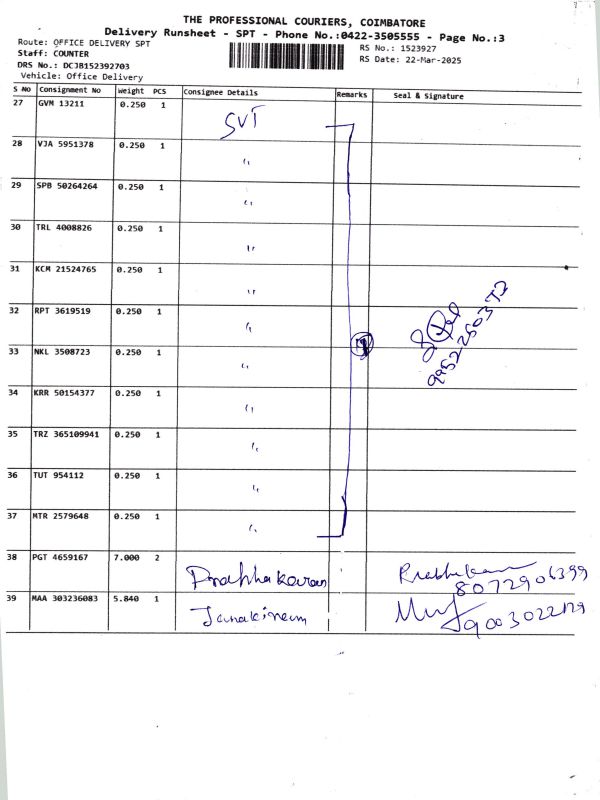 THE PROFESSIONAL COURIERS, COIMBATORE
Delivery Runsheet - SPT - Phone No.:0422-3505555 - Page No.:3
Route: OFFICE DELIVERY SPT
RS No.: 1523927
Staff: COUNTER
RS Date: 22-Mar-2025
DRS No.: DCJB152392703
Vehicle: Office Delivery
S No Consignment No Weight PCS Consignee Details Remarks Seal & Signature
27 GVM 13211 0.250 1 SVT
28 VJA 5951378 0.250 1 "
29 SPB 50264264 0.250 1 "
30 TRL 4008826 0.250 1 "
31 KCM 21524765 0.250 1 "
32 RPT 3619519 0.250 1 "
33 NKL 3508723 0.250 1 "
34 KRR 50154377 0.250 1 "
35 TRZ 365109941 0.250 1 "
36 TUT 954112 0.250 1 "
37 MTR 2579648 0.250 1 "
38 PGT 4659167 7.000 2 Prabhakaran
8072906399
39 MAA 303236083 5.840 1 Janakiram
9003022129